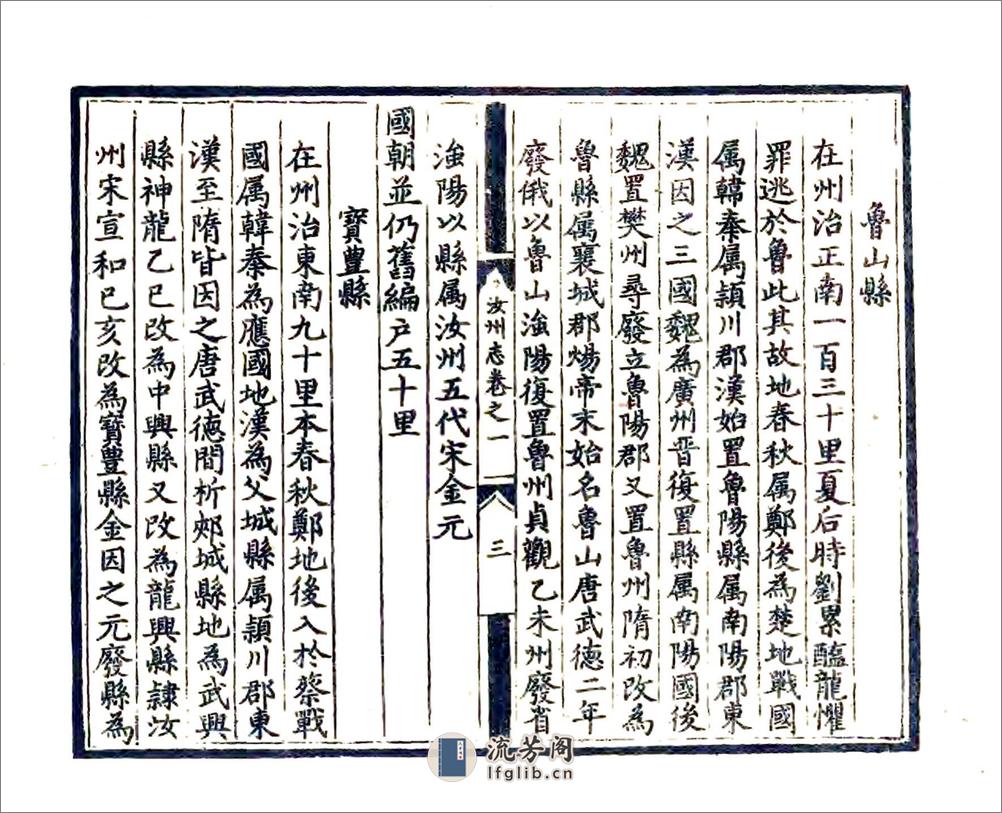 魯山縣
在州治正南一百三十里夏后時劉累醢龍懼
罪逃於魯此其故地春秋属鄭後為楚地戰國
属韓秦属頴川郡漢始置魯陽縣属南陽郡東
漢因之三國魏為廣州晋復置縣属南陽國後
魏置樊州尋廢立魯陽郡又置魯州隋初改為
魯縣属襄城郡煬帝末始名魯山唐武德二年
廢俄以魯山滍陽復置魯州貞觀乙未州廢省
汝州志卷之一
三
滍陽以縣属汝州五代宋金元
國朝並仍舊編户五十里
寶豊縣
在州治東南九十里本春秋鄭地後入於蔡戰
國属韓秦為應國地漢為父城縣属頴川郡東
漢至隋皆因之唐武徳間析郟城縣地為武興
縣神龍乙巳改為中興縣又改為龍興縣隷汝
州宋宣和已亥改為寳豊縣金因之元廢縣為
流芳阁
lfglib.cn